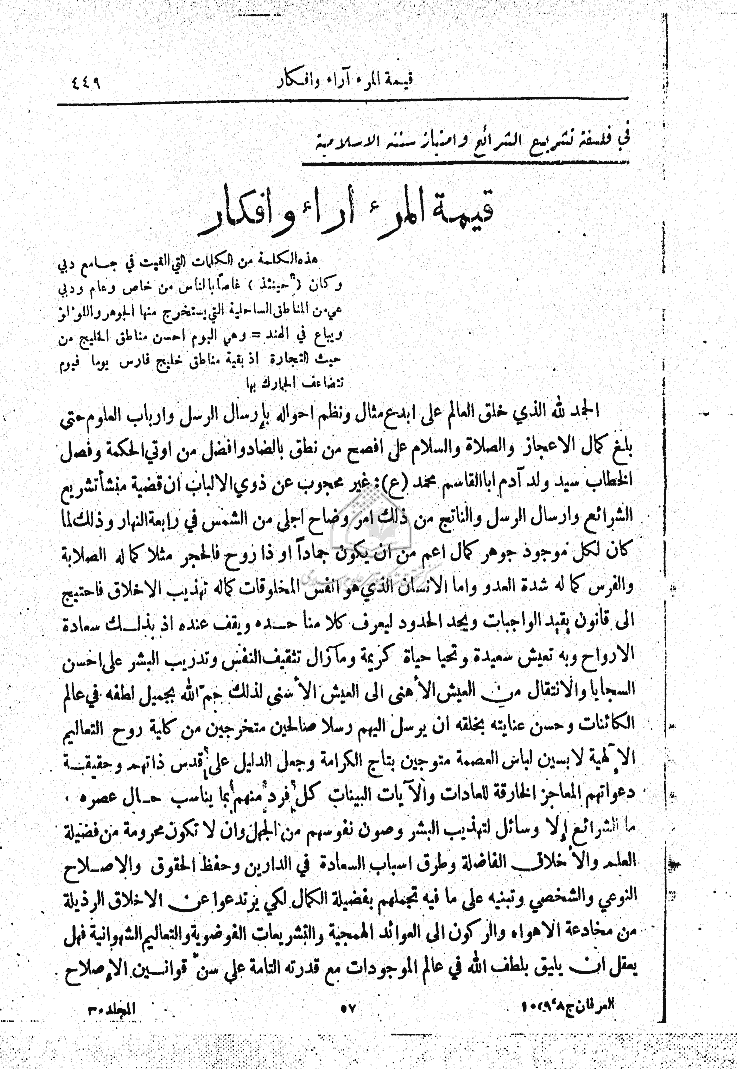 قيمة المرء آراء وافكار
٤٤٩
في فلسفة تشريع الشرائع وامتياز سننه الاسلامية
قيمة المرء آراء وافكار
هذه الكلمة من الكلمات التي القيت في جامع دبي
وكان (حينئذ) غاصاً بالناس من خاص وعام ودبي
هي من المناطق الساحلية التي يستخرج منها الجوهر واللؤلؤ
ويباع في الهند = وهي اليوم احسن مناطق الخليج من
حيث التجارة اذ بقية مناطق خليج فارس يوما فيوم
تتضاعف الجمارك بها
الحمد لله الذي خلق العالم على ابدع مثال ونظم احواله بإرسال الرسل وارباب العلوم حتى
بلغ كمال الاعجاز والصلاة والسلام على افصح من نطق بالضاد وافضل من اوتي الحكمة وفصل
الخطاب سيد ولد آدم ابا القاسم محمد (ع): غير محجوب عن ذوي الالباب ان قضية منشأ تشريع
الشرائع وارسال الرسل والناتج من ذلك امر وضاح اجلى من الشمس في رابعة النهار وذلك لما
كان لكل موجود جوهر كمال اعم من ان يكون جماداً او ذا زوح فالحجر مثلا كماله الصلابة
والفرس كماله شدة العدو واما الانسان الذي هو انفس المخلوقات كماله تهذيب الاخلاق فاحتيج
الى قانون بقيد الواجبات ويحد الحدود ليعرف كلا منا حده ويقف عنده اذ بذلك سعادة
الارواح وبه تعيش سعيدة وتحيا حياة كريمة ومآزال تثقيف النفس وتدريب البشر على احسن
السجايا والانتقال من العيش الأهنى الى العيش الأسنى لذلك جم الله بجميل لطفه في عالم
الكائنات وحسن عنايته بخلقه ان يرسل اليهم رسلا صالحين متخرجين من كلية روح التعاليم
الإلهية لابسين لباس العصمة متوجين بتاج الكرامة وجعلى الدليل على قدس ذاتهم وحقيقة
دعواتهم المعاجز الخارقة للعادات والآيات البينات كل فرد منهم بما يناسب حال عصره .
ما الشرائع إلا وسائل لتهذيب البشر وصون نفوسهم من الجهل وان لا تكون محرومة من فضيلة
العلم والأخلاق الفاضلة وطرق اسباب السعادة في الدارين وحفظ الحقوق والاصلاح
النوعي والشخصي وتبنيه على ما فيه تجملهم بفضيلة الكمال لكي يرتدعوا عن الاخلاق الرذيلة
من مخادعة الاهواء والركون الى العوائد الهمجية والتشريعات الفوضوية والتعاليم الشهوانية فهل
يعقل ان يليق بلطف الله في عالم الموجودات مع قدرته التامة على سن قوانين الإصلاح
العرفان ج٨،٩،١٠
٥٧
المجلد ٣٠